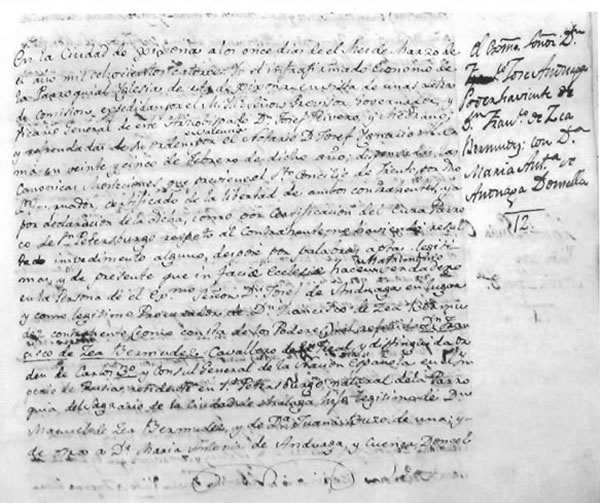 En la Ciudad de Gixona a los once dias de el Mes de Marzo de
el año mil ochocientos catorce: Yo el infrafirmado Economo de
la Parroquial Iglesia de
de comision expedida por el Provisor Governador, y
Vicario General de este Arzobispado Dn. Josef Rivero, y
y refrendadas de su orden por el Notario Dn. Josef Ygnacio
en veinte y cinco de Febrero de dicho año; dispensadas las
Canonicas Moniciones que previene el Sto. Concilio de Trento, por Dho
Governador, certificado de la libertad de ambos contrahentes, ya
por declaracion de la dicha, como por certificacion del Cura Parro
co de Sn. Petersburgo respeto al contrahente, no haviendo resul
tado impedimento alguno, desposé por palabras aptas legiti
mas, y de presente que in facie Eclesie hacen verdadero Matrimonio
en la Persona de el Exmo. Señor Dn. Josef de Anduaga en lugar
y como legitimo Procurador de Dn. Francisco de Zea Bermu
dez contrahente como consta de los Poderes a Dn. Fran
cisco de Zea Bermudez, Cavallero de la Real, y distinguida or
den de Carlos 3o. y Consul General de la Nacion Española en el im
perio de Rusia, residente en Sn. Petersburgo, natural de la Parro
quia del Sagrario de la Ciudad de Malaga, hijo legitimo de Dn.
Manuel de Zea Bermudez, y de Da. Juana Buzo de una; y
de otra a Da. Maria Antonia de Anduaga, y Cuenca Doncel
El Exmo. Señor Dn.
Josef Anduaga
Poderhaviente de
Dn. Franco. de Zea
Bermudez; con Da.
Maria Anta. de
Anduaga Donsella
12.